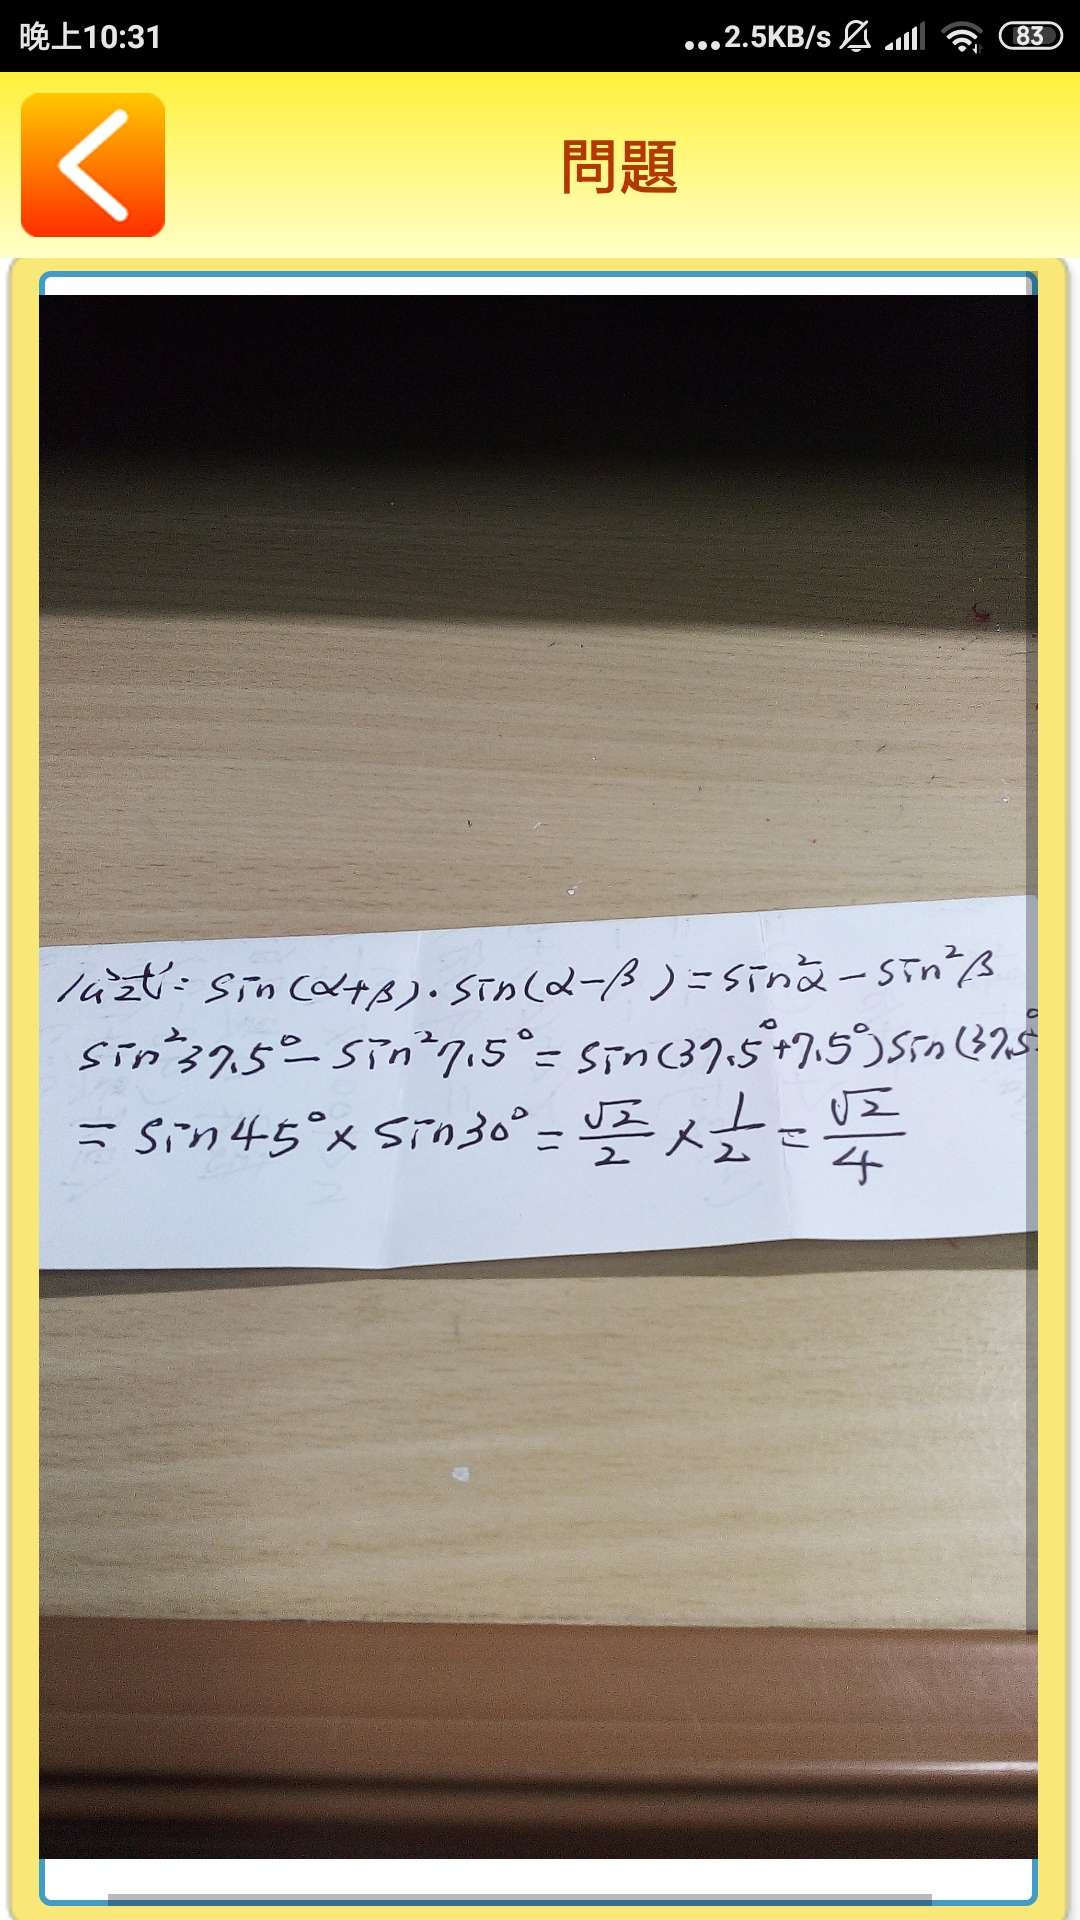 晚上10:31
...2.5KB/s
83
問題
公式: sin(α+β)·sin(α-β)=sin²α-sin²β
sin²37.5°-sin²7.5°=sin(37.5°+7.5°)sin(37.5°
=sin45°×sin30°=√2/2×1/2=√2/4